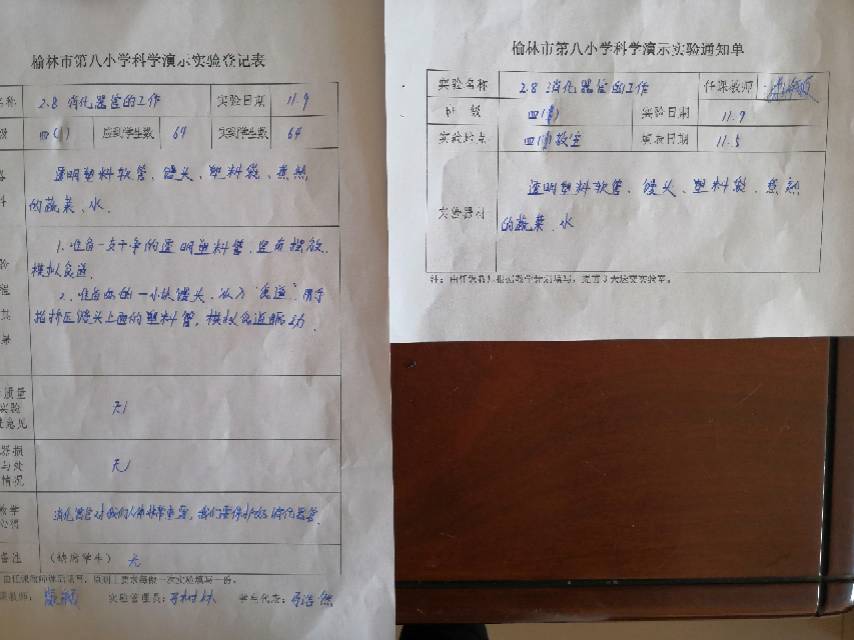 榆林市第八小学科学演示实验登记表
名称 2.8 消化器官的工作 实验日期 11.9
级 四(1) 应到学生数 64 实到学生数 64
透明塑料软管、馒头、塑料袋、煮熟
的蔬菜、水
1. 准备一支干净的透明塑料管,竖着摆放,
模拟食道。
2. 准备好的一小块馒头,放入“食道”,用手
指挤压馒头上面的塑料管,模拟食道蠕动
质量
实验
意见
无
器损
与处
情况
无
教学
心得
消化器官对我们人体非常重要,我们要保护好消化器官
备注 (缺席学生) 无
由任课教师课后填写,原则上要求每做一次实验填写一份。
实验管理员: 学生代表:
榆林市第八小学科学演示实验通知单
实验名称 2.8 消化器官的工作 任课教师
班 级 四(1) 实验日期 11.9
实验地点 四(1)教室 填表日期 11.5
实验器材
透明塑料软管、馒头、塑料袋、煮熟
的蔬菜、水
注:由任课教师根据教学计划填写,提前3天送交实验室。